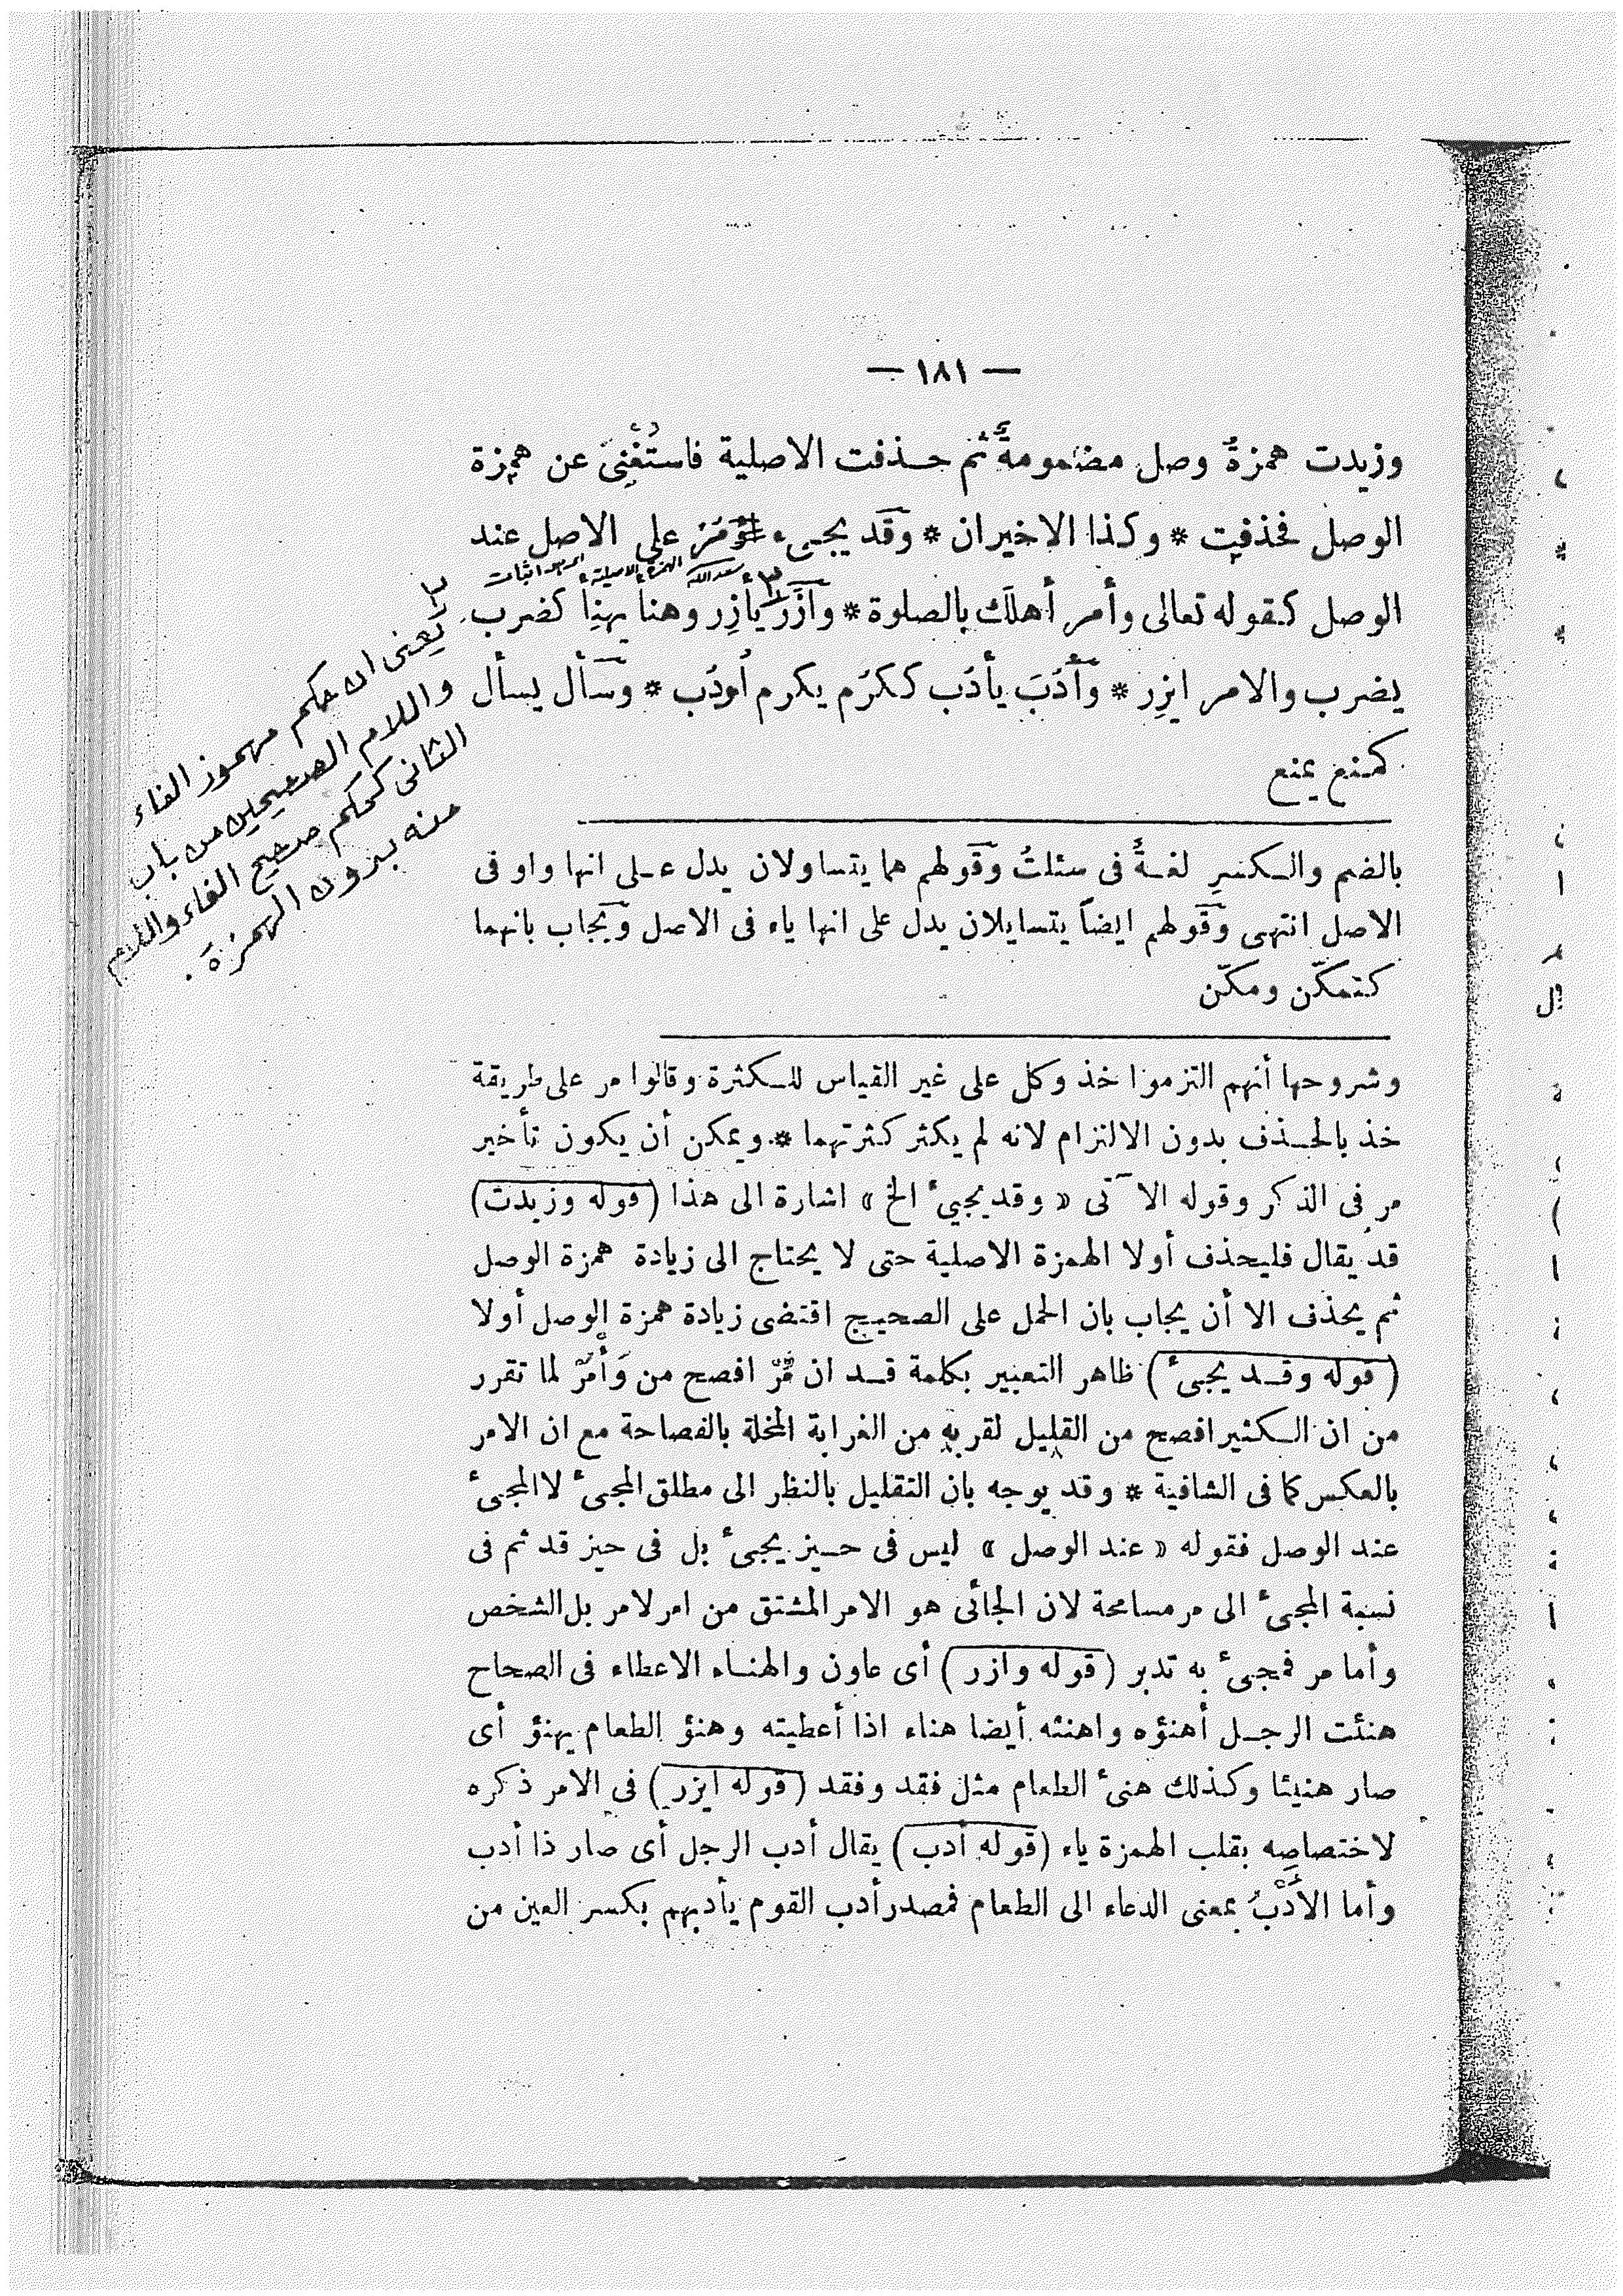 — ١٨١ —
وزيدت همزةُ وصل مضمومةً ثم حذفت الاصلية فاستُغْنِىَ عن همزة
الوصل فحذفت * وكذا الاخيران * وقد يجىء مُرْ على الاصل عند
الوصل كقوله تعالى وأمر أهلك بالصلوة * وآزَرَ يأزِر وهنأ يهنِأ كضرب
يضرب والامر ايزِر * وأَدُبَ يأدُب ككرُم يكرم اُودُب * وسأل يسأل
كمنع يمنع
بالضم والكسرِ لغةً فى سئلتُ وقولهم هما يتساولان يدل على انها واو فى
الاصل انتهى وقولهم ايضاً يتسايلان يدل على انها ياء فى الاصل ويجاب بانهما
كتمكّن ومكّن
وشروحها أنهم التزموا خذ وكل على غير القياس للكثرة وقالوا مر على طريقة
خذ بالحذف بدون الالتزام لانه لم يكثر كثرتهما * ويمكن أن يكون تأخير
مر فى الذكر وقوله الآتى « وقد يجىء الخ » اشارة الى هذا (قوله وزيدت)
قد يقال فليحذف أولا الهمزة الاصلية حتى لا يحتاج الى زيادة همزة الوصل
ثم يحذف الا أن يجاب بان الحمل على الصحيح اقتضى زيادة همزة الوصل أولا
(قوله وقد يجىء) ظاهر التعبير بكلمة قد ان مُرْ افصح من وَأْمُرْ لما تقرر
من ان الكثير افصح من القليل لقربه من الغرابة المخلة بالفصاحة مع ان الامر
بالعكس كما فى الشافية * وقد يوجه بان التقليل بالنظر الى مطلق المجىء لا المجىء
عند الوصل فقوله « عند الوصل » ليس فى حيز يجىء بل فى حيز قد ثم فى
نسبة المجىء الى مر مسامحة لان الجائى هو الامر المشتق من امر لامر بل الشخص
وأما مر فمجىء به تدبر (قوله وازر) أى عاون والهناء الاعطاء فى الصحاح
هنئت الرجل أهنؤه واهنئه أيضا هناء اذا أعطيته وهنؤ الطعام يهنؤ أى
صار هنيئا وكذلك هنىء الطعام مثل فقد وفقد (قوله ايزر) فى الامر ذكره
لاختصاصه بقلب الهمزة ياء (قوله أدب) يقال أدب الرجل أى صار ذا أدب
وأما الأَدْبُ بمعنى الدعاء الى الطعام فمصدر أدب القوم يأدبهم بكسر العين من
٣ يعنى ان حكم مهموز الفاء
واللام الصحيحين من باب
الثانى كحكم صحيح الفاء واللام
منه بدون الهمزة .